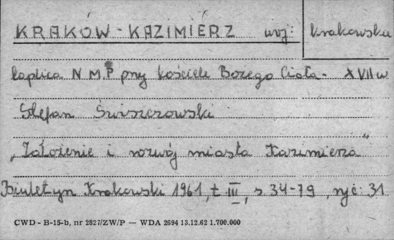 KRAKÓW - KAZIMIERZ woj: krakowskie
kaplica N.M.P przy kościele Bożego Ciała - XVII w
Stefan Świszczowski
„Założenie i rozwój miasta Kazimierza"
Biuletyn Krakowski 1961, t III, s. 34-79, ryc: 31
CWD - B-15-b, nr 2827/ZW/P — WDA 2694 13.12.62 1.700.000